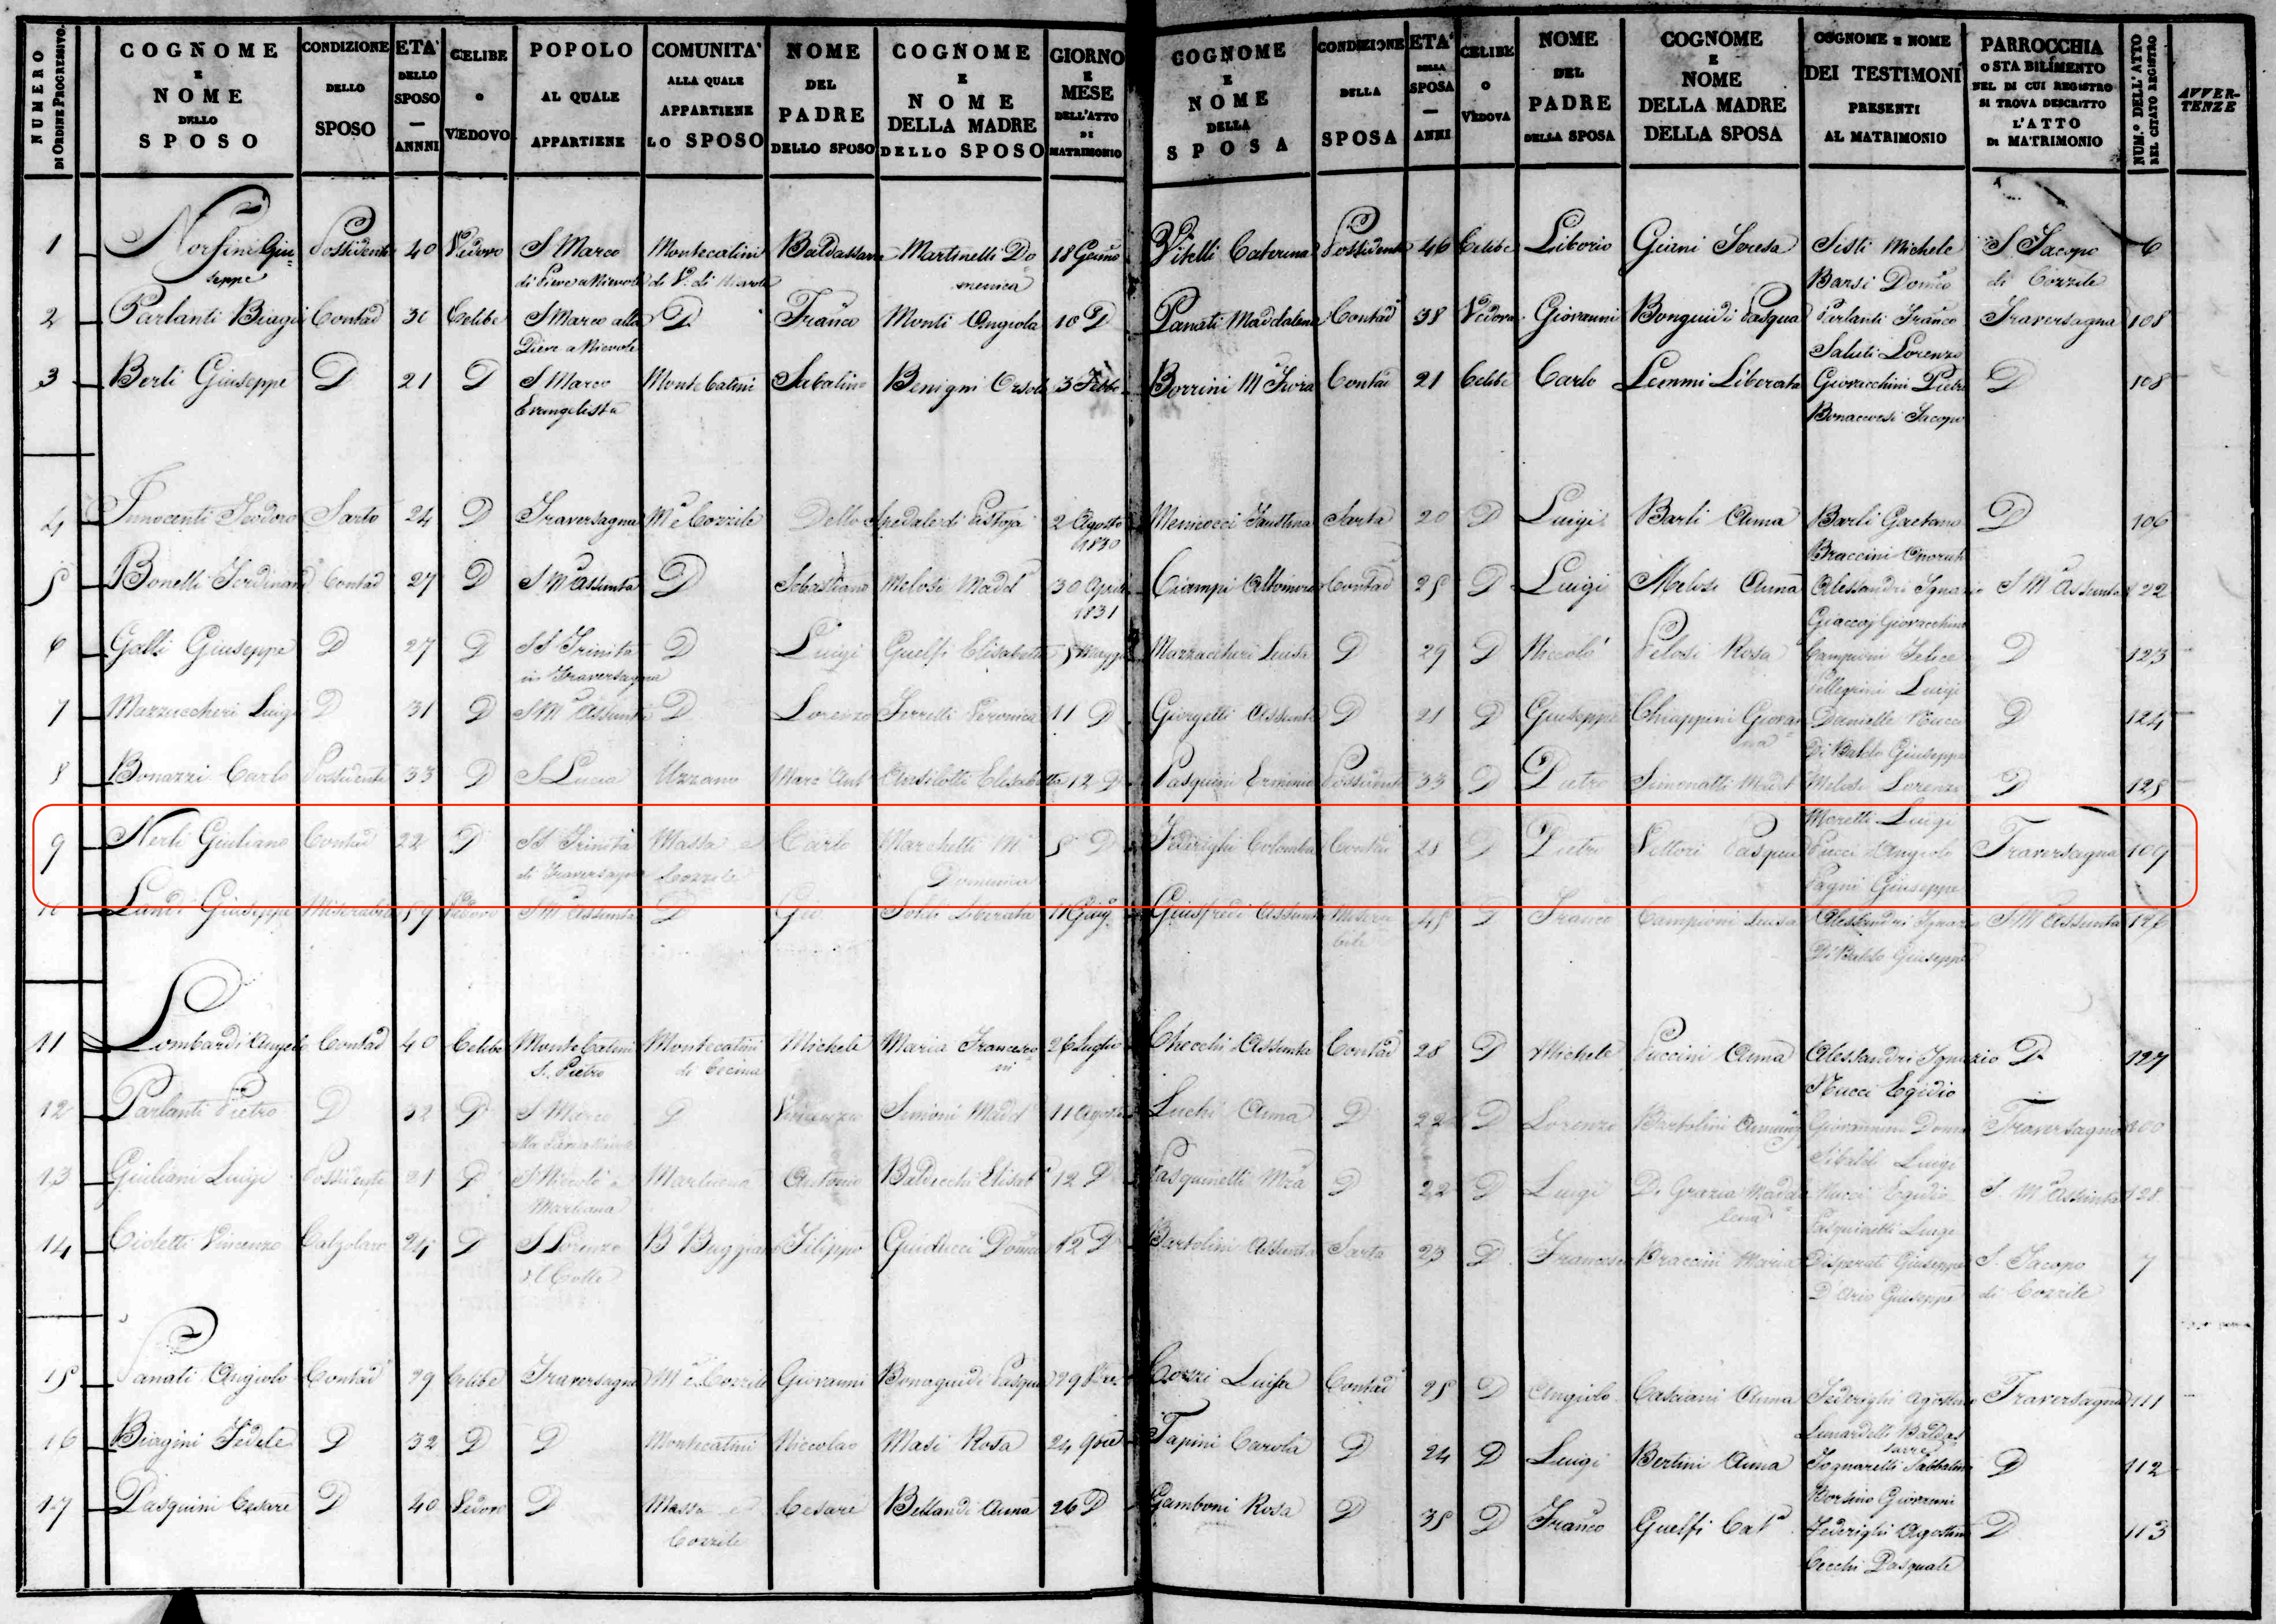 NUMERO DI ORDINE PROGRESSIVO. COGNOME E NOME DELLO SPOSO CONDIZIONE DELLO SPOSO ETA' DELLO SPOSO — ANNNI CELIBE O VEDOVO POPOLO AL QUALE APPARTIENE COMUNITA' ALLA QUALE APPARTIENE LO SPOSO NOME DEL PADRE DELLO SPOSO COGNOME E NOME DELLA MADRE DELLO SPOSO GIORNO E MESE DELL'ATTO DI MATRIMONIO COGNOME E NOME DELLA SPOSA CONDIZIONE DELLA SPOSA ETA' DELLA SPOSA — ANNI CELIBE O VEDOVA NOME DEL PADRE DELLA SPOSA COGNOME E NOME DELLA MADRE DELLA SPOSA COGNOME E NOME DEI TESTIMONI PRESENTI AL MATRIMONIO PARROCCHIA O STABILIMENTO NEL DI CUI REGISTRO SI TROVA DESCRITTO L'ATTO DI MATRIMONIO NUM.º DELL'ATTO NEL CITATO REGISTRO AVVERTENZE
1 Norfini Giu= Possidente 40 Vedovo S Marco Montecatini Baldassarre Martinelli Do 18 Genno Vitelli Caterina Possidente 46 Celibe Liborio Giurni Teresa Sisti Michele S Jacopo 6
seppe di Pieve a Nievole di V. di Nievole menica Barsi Domco di Cozzile
2 Parlanti Biagio Contad 30 Celibe S Marco alla D Franco Monti Angiola 18 D Panati Maddalena Contad 38 Vedova Giovanni Bonguidi Pasqua Parlanti Franco Traversagna 108
Pieve a Nievole Saluti Lorenzo
3 Berti Giuseppe D 21 D S Marco Monte Catini Sabatino Benigni Orsola 3 Febbo Borrini Contad 21 Celibe Carlo Lemmi Liberata Giovacchini Pietro D 108
Evangelista Bonaccorsi Jacopo
4 Innocenti Teodoro Sarto 24 D Traversagna Ma e Cozzile Dello Spedale di Pistoja 2 Agosto Menicocci Faustina Sarta 20 D Luigi Barli Anna Barli Gaetano D 106
1830 Braccini Onorato
5 Bonelli Ferdinando Contad 27 D S Ma Assunta D Sebastiano Melosi Madda 30 Aprile Ciampi Contad 25 D Luigi Melosi Anna Alessandri Ignazio S Ma Assunta 122
1831 Giovacchino
6 Galli Giuseppe D 27 D SS Trinita D Luigi Guelfi Elisabetta 5 Maggio Mazzaccheri Luisa D 29 D Niccolò Pelosi Rosa Campioni Felice D 123
in Traversagna Pellegrini Luigi
7 Mazzuccheri Luigi D 31 D S Ma Assunta D Lorenzo Ferretti Veronica 11 D Giorgetti Assunta D 21 D Giuseppe Chiappini Giovan= Danielle Nucci D 124
na Di Baldo Giuseppe
8 Bonazzi Carlo Possidente 33 D S Lucia Uzzano Marc Ant Ansilotti Elisabetta 12 D Pasquini Erminia Possidente 33 D Pietro Simonatti Madda Melosi Lorenzo D 125
Moretti Luigi
9 Nerli Giuliano Contad 22 D SS Trinità Massa e Carlo Marchetti Ma 5 D Federighi Colomba Contad 25 D Pietro Vettori Pasqua Pucci Angiolo Traversagna 109
di Traversagna Cozzile Domenica Pagni Giuseppe
10 Landi Giuseppe Miserabile 59 Vedovo S Ma Assunta D Gio Soldi Liberata 11 Giug Giusfredi Assunta Misera 45 D Franco Campioni Luisa Alessandri Ignazio S Ma Assunta 126
bile Di Baldo Giuseppe
11 Lombardi Angelo Contad 40 Celibe Monte Catini Montecatini Michele Maria Francesco 26 Luglio Checchi Assunta Contad 28 D Michele Puccini Anna Alessandri Ignazio D 127
S. Pietro di Cecina ni Nucci Egidio
12 Parlanti Pietro D 32 D S Marco D Vincenzo Simoni Madda 11 Agosto Luchi Anna D 22 D Lorenzo Bartolini Giovannini Domco Traversagna
alla Pieve a Nievole Luigi
13 Giuliani Luigi Possidente 21 D S Niccolò a Marliana Antonio Elisab 12 D Pasquinelli D 22 D Luigi Di Grazia Madda Nucci Egidio S. Ma Assunta 128
Marliana lena Pasquinelli Luigi
14 Cioletti Vincenzo Calzolaro 24 D S Lorenzo Bo Buggiano Filippo Guiducci Domca 12 D Bartolini Assunta Sarta 23 D Francesco Braccini Maria Disperati Giuseppe S. Jacopo 7
al Colle Giuseppe di Cozzile
15 Panati Angiolo Contad 29 Celibe Traversagna Ma e Cozzile Giovanni Bonaguidi Pasqua 29 Cozzi Luisa Contad 25 D Angiolo Casciani Anna Federighi Agostino Traversagna 111
Lunardelli Baldas
16 Biagini Fedele D 32 D D Montecatini Niccolao Masi Rosa 24 9bre Tapini Carola D 24 D Luigi Bertini Anna Sabbatino D 112
Giovanni
17 Pasquini Cesare D 40 Vedovo D Massa e Cesare Bellandi Anna 26 D Gamboni Rosa D 35 D Franco Guelfi Cata Federighi Agostino D 113
Cozzile Cecchi Pasquale